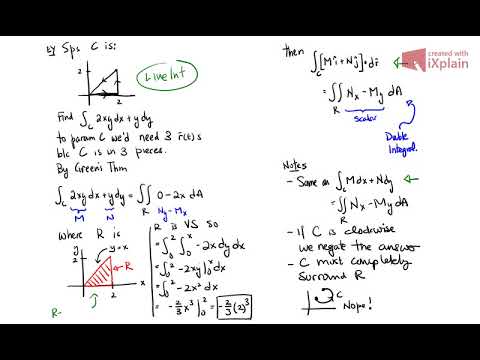 Ex) Sps C is:
2
2
Line Int
Find ∫_C 2xy dx + y dy
to param C we'd need 3 r̄(t)s
b/c C is in 3 pieces.
By Green's Thm
∫_C 2xy dx + y dy = ∬_R 0 - 2x dA
M N Ny - Mx
where R is
y
2
y=x
R
x
2
R-
R is VS so
= ∫_0^2 ∫_0^x -2x dy dx
= ∫_0^2 -2xy|_0^x dx
= ∫_0^2 -2x² dx
= -2/3 x³|_0^2 = -2/3 (2)³
then
∫_C [Mî + Nĵ]•dr̄
= ∬_R Nx - My dA
scalar
Double
Integral.
Notes
- Same as ∫_C M dx + N dy
= ∬_R Nx - My dA
- If C is clockwise
we negate the answer
- C must completely
surround R
C
Nope!
created with
iXplain